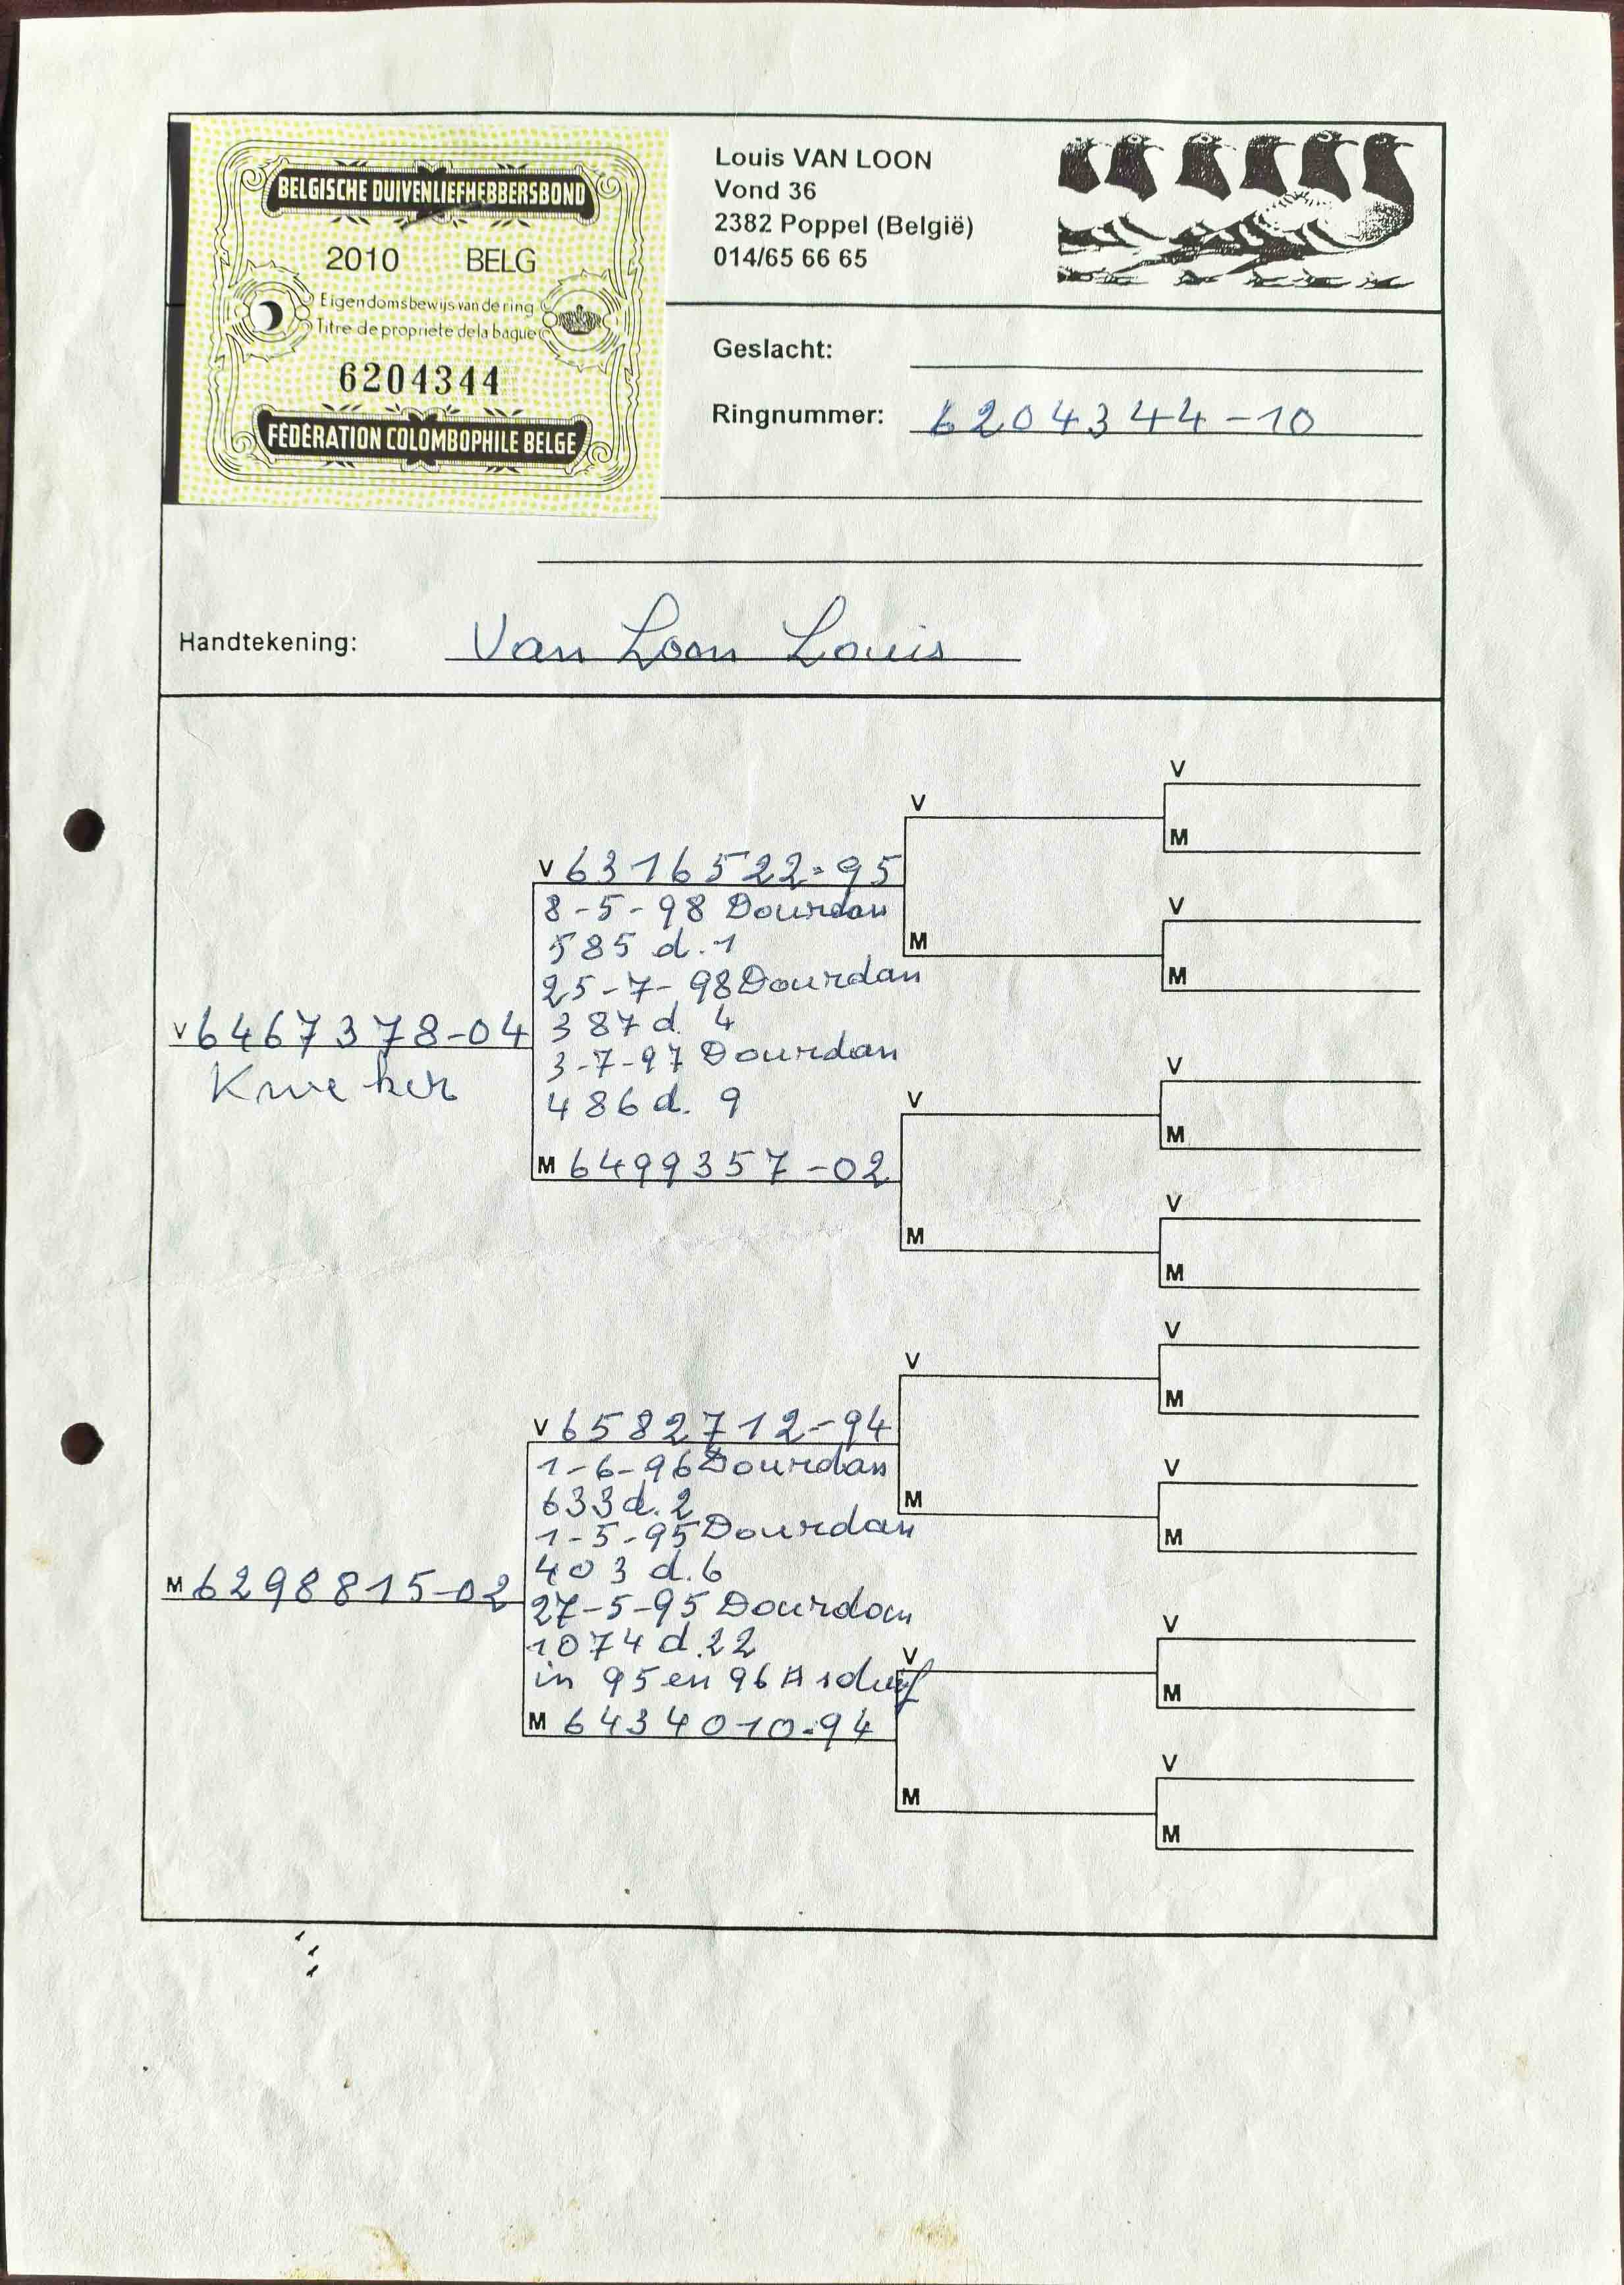 BELGISCHE DUIVENLIEFHEBBERSBOND
2010 BELG
Eigendomsbewijs van de ring
Titre de propriété de la bague
6204344
FÉDÉRATION COLOMBOPHILE BELGE
Louis VAN LOON
Vond 36
2382 Poppel (België)
014/65 66 65
Geslacht:
Ringnummer: 6204344-10
Handtekening: Van Loon Louis
V
V
M
V 6316522-95
8-5-98 Dourdan
585 d. 1
25-7-98 Dourdan
387 d. 4
3-7-97 Dourdan
486 d. 9
V
M
M
V 6467378-04
Kweker
V
V
M
M 6499357-02
V
M
M
V
V
M
V 6582712-94
1-6-96 Dourdan
633 d. 2
1-5-95 Dourdan
403 d. 6
27-5-95 Dourdan
1074 d. 22
in 95 en 96
V
M
M
M 6298815-02
V
V
M
M 6434010-94
V
M
M